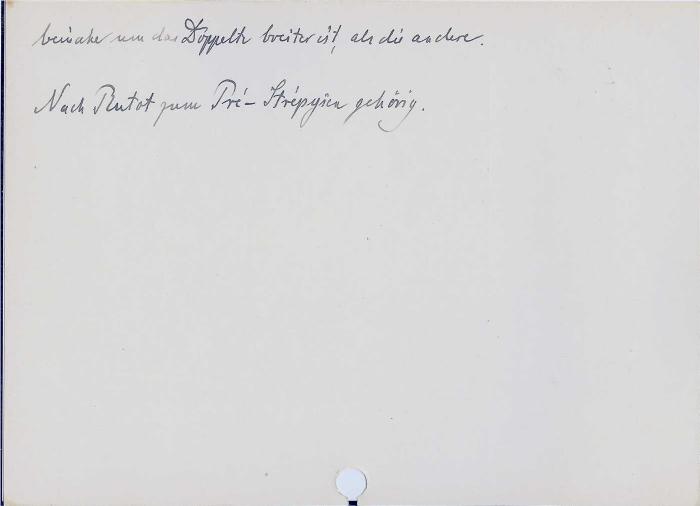 beinahe um das Doppelte breiter ist, als die andere.
Nach Rutot zum Pré-Strépyien gehörig.